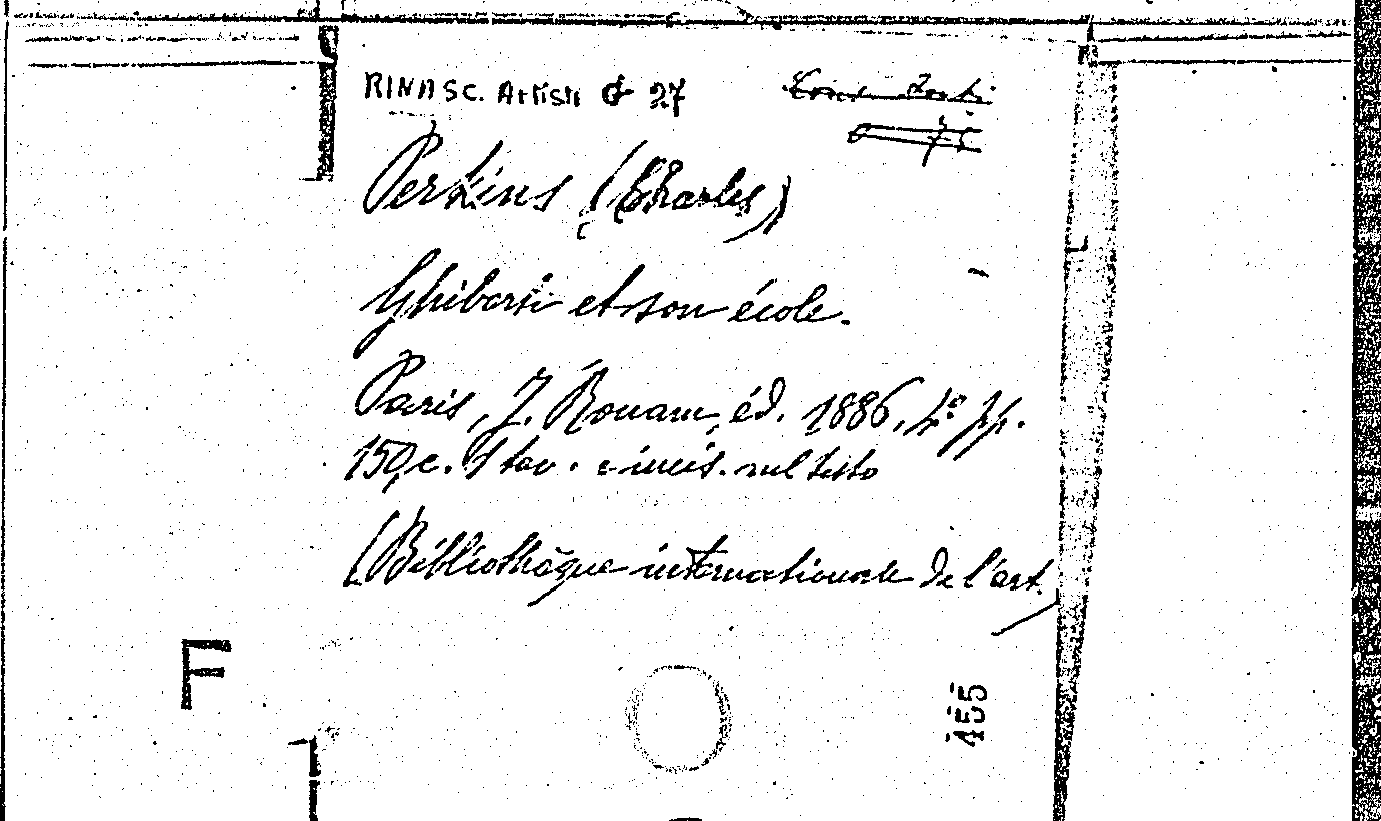 RINASC. Artisti G 27
Perkins (Charles)
Ghiberti et son école.
Paris, J. Rouam, éd. 1886, 4° pp.
150, c. tav. e incis. nel testo
(Bibliothèque internationale de l'art.)
F
455